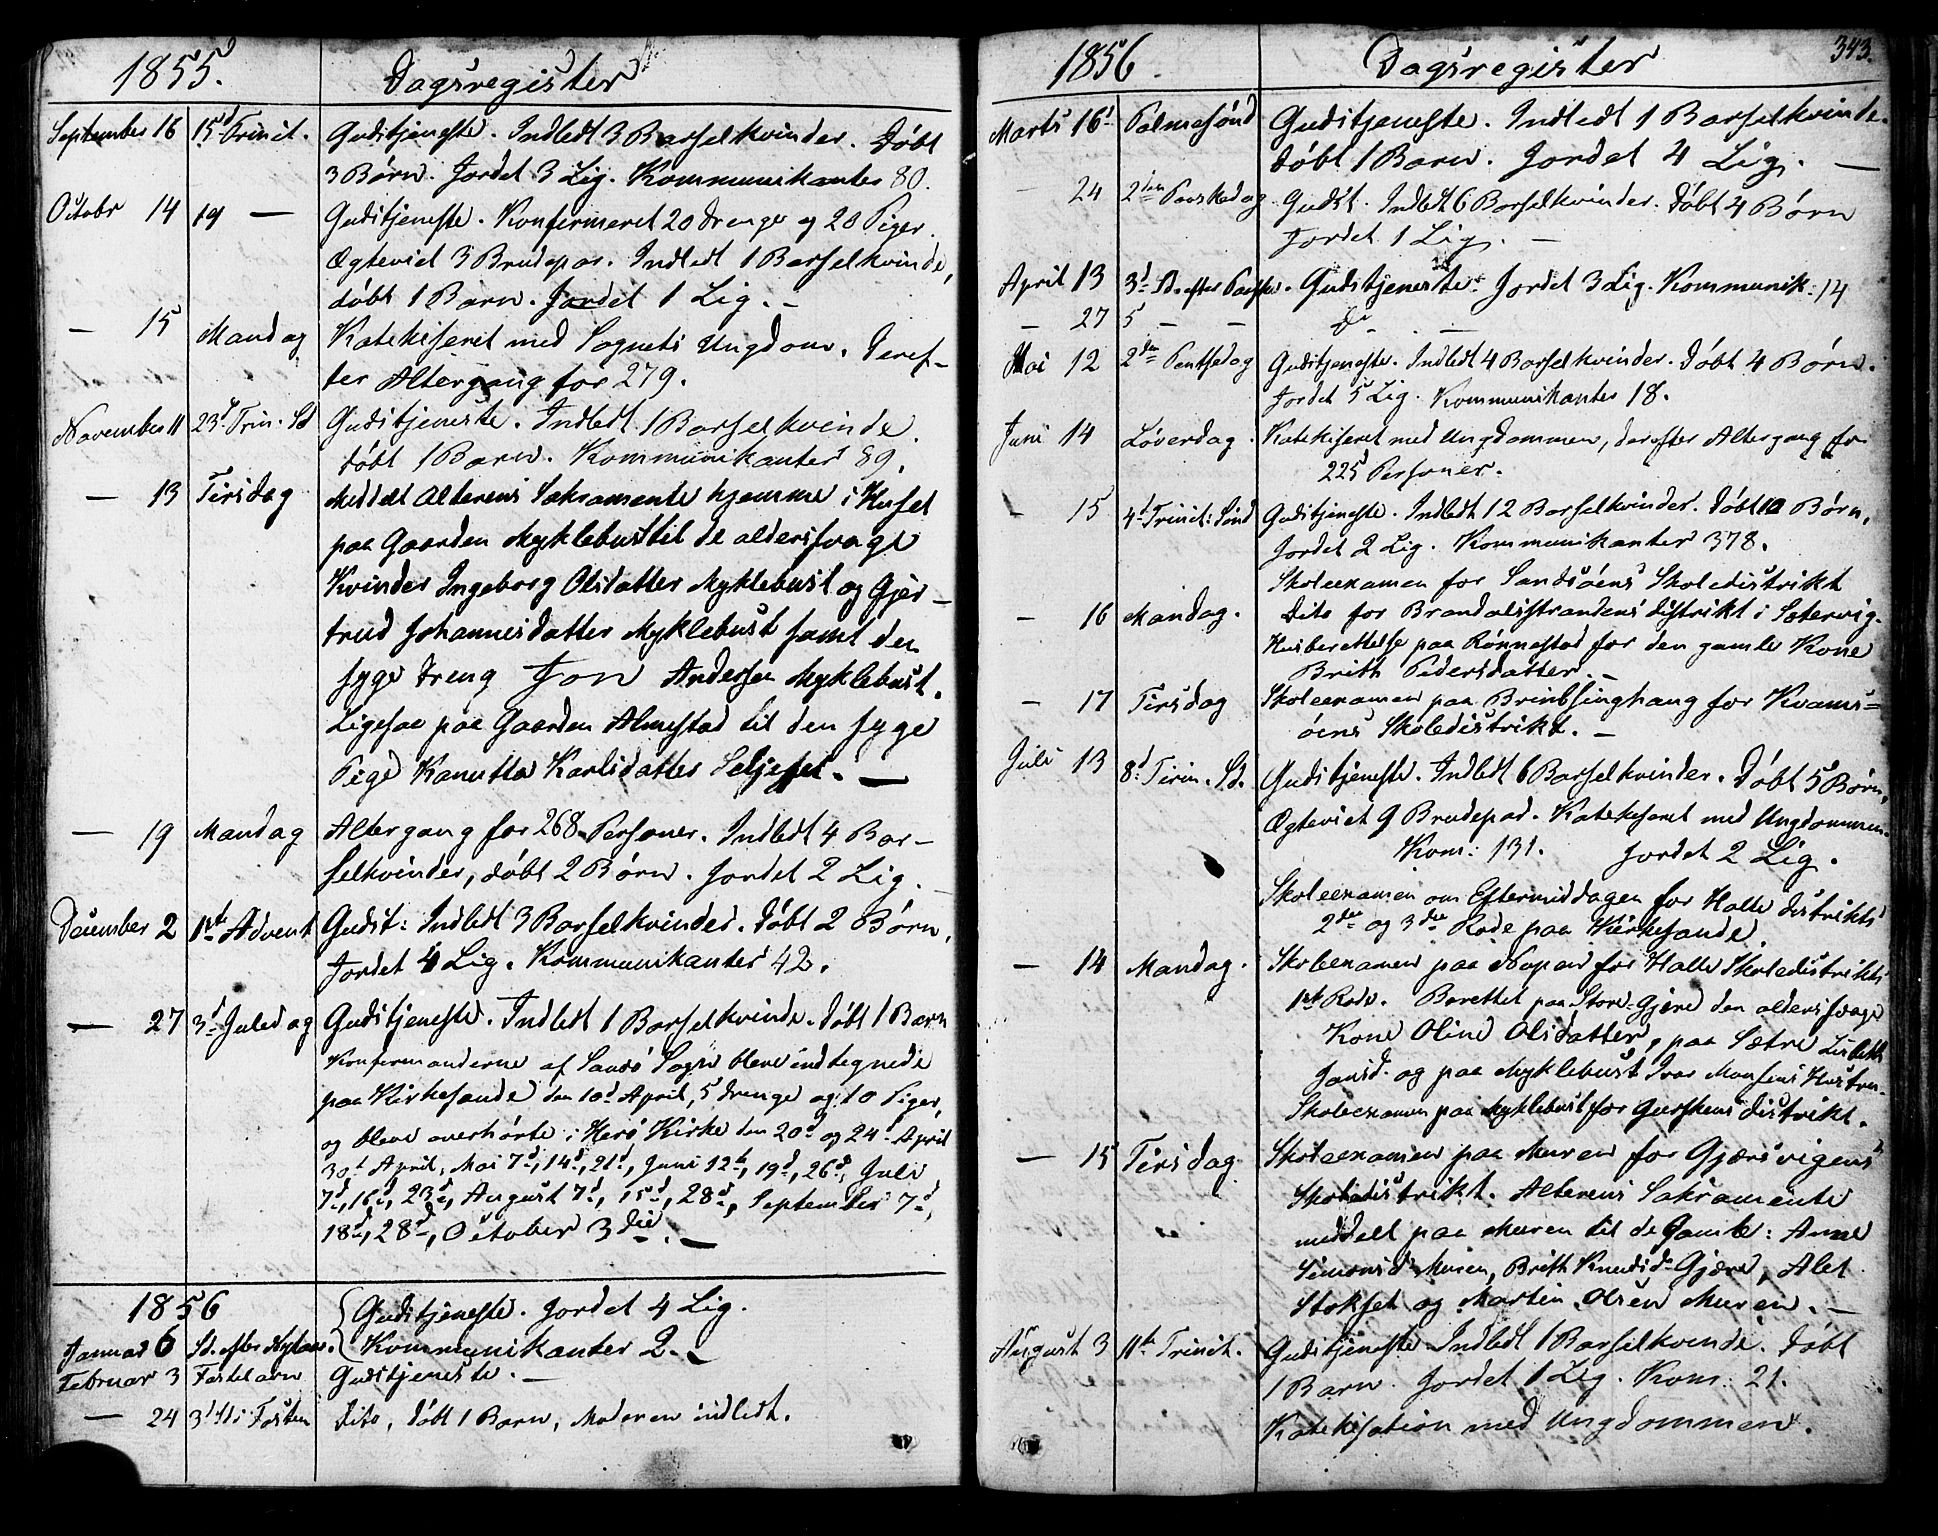 1855. Dagsregister
September 16 15d Trinit. Gudstjeneste. Indledt 3 Barselkvinder. Døbt
3 Børn. Jordet 3 Lig. Kommunikanter 80.
Octobr 14 19 — Gudstjeneste. Konfirmeret 20 Drenge og 20 Piger.
Ægteviet 3 Brudepar. Indledt 1 Barselkvinde,
døbt 1 Barn. Jordet 1 Lig. —
— 15 Mandag Katekiseret med Sognets Ungdom. Deref-
ter Altergang for 279.
November 11 23d Trin. Sd Gudstjeneste. Indledt 1 Barselkvinde.
Døbt 1 Barn. Kommunikanter 89.
— 13 Tirsdag Meddelt Alterens Sakramente hjemme i Huset
paa Gaarden Myklebust til de alderssvage
Kvinder Ingeborg Olsdatter Myklebust og Gjer-
trud Johannesdatter Myklebust samt den
syge Dreng Jon Andersen Myklebust.
Ligesaa paa Gaarden Almestad til den syge
Pige Kanutta Karlsdatter Seljeset. —
— 19 Mandag Altergang for 268 Personer. Indledt 4 Bar-
selkvinder, døbt 2 Børn. Jordet 2 Lig.
December 2 1ste Advent Gudst: Indledt 3 Barselkvinder. Døbt 2 Børn,
Jordet 4 Lig. Kommunikanter 42.
— 27 3d Juledag Gudstjeneste. Indledt 1 Barselkvinde. Døbt 1 Barn
Konfirmanderne af Sandø Sogn bleve indtegnede
paa Kirkesande den 10d April, 5 Drenge og 10 Piger,
og bleve overhørte i Herø Kirke den 20d og 24d April
30t April, Mai 7d, 14d, 21d, Juni 12te, 19d, 26d, Juli
7d, 16d, 23d, August 7d, 15d, 28d, September 7d,
18d, 28d, October 3die. —
1856
Januar 6 Sd. efter Nytaar. Gudstjeneste. Jordet 4 Lig.
Kommunikanter 2. —
Februar 3 Fastelavn Gudstjeneste. —
— 24 3d Sd i Fasten Dito, døbt 1 Barn, Moderen indledt.
1856. Dagsregister 343.
Marts 16d Palmesønd Gudstjeneste. Indledt 1 Barselkvinde.
Døbt 1 Barn. Jordet 4 Lig. —
— 24 2den Paaskedag Gudst. Indledt 6 Barselkvinder. Døbt 4 Børn
Jordet 1 Lig. —
April 13 3d Sd. efter Paaske. Gudstjeneste. Jordet 3 Lig. Kommunik: 14
— 27 5 — — do — —
Mai 12 2den Pintsedag Gudstjeneste. Indledt 4 Barselkvinder. Døbt 4 Børn.
Jordet 5 Lig. Kommunikanter 18.
Juni 14 Løverdag. Katekiseret med Ungdommen, derefter Altergang for
225 Personer.
— 15 4d Trinit: Sønd Gudstjeneste. Indledt 12 Barselkvinder. Døbt 10 Børn,
Jordet 2 Lig. Kommunikanter 378.
Skoleexamen for Sandsøens Skoledistrikt
— 16 Mandag. Dito for Brandalsstrandens Distrikt i Sætervig.
Husberettelse paa Rønnestad for den gamle Kone
Brith Pedersdatter. —
— 17 Tirsdag Skoleexamen paa Bringsinghaug for Kvams-
øens Skoledistrikt. —
Juli 13 8d Trin. Sd. Gudstjeneste. Indledt 6 Barselkvinder. Døbt 5 Børn,
Ægteviet 9 Brudepar. Katekiseret med Ungdommen.
Kom: 131. Jordet 2 Lig.
Skoleexamen om Eftermiddagen for Halle Distrikts
2den og 3die Rode paa Kirkesande.
— 14 Mandag. Skoleexamen paa Nopen for Halle Skoledistrikts
1ste Rode. Berettet paa Store-Gjære den aldersvage
Kone Oline Olsdatter, paa Sætre Lisbeth
Jonsd. og paa Myklebust Ivar Monsens Hustru.
Skoleexamen paa Myklebust for Gurskens Distrikt.
— 15 Tirsdag Skoleexamen paa Muren for Gjærsvigens
Skoledistrikt. Alterens Sakramente
meddelt paa Muren til de Gamle: Anne
Simonsd. Muren, Brith Knudsd. Gjære, Alet
Stokset og Martin Olsen Muren. —
August 3 11te Trinit. Gudstjeneste. Indledt 1 Barselkvinde. Døbt
1 Barn. Jordet 1 Lig. Kom: 21.
Katekisation med Ungdommen.